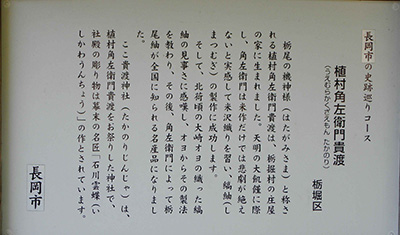 長岡市の史跡巡りコース
植村角左衛門貴渡
(うえむらかくざえもん たかのり)
栃堀区
栃尾の機神様(はたがみさま)と称さ
れる植村角左衛門貴渡は、栃掘村の庄屋
の家に生まれました。天明の大飢饉に際
し、角左衛門は米作だけでは悲劇が絶え
ないと実感して米沢織りを習い、縞紬(し
まつむぎ)の製作に成功します。
そして、北荷頃の大崎オヨの織った縞
紬の見事さに感嘆し、オヨからその製法
を教わり、その後、角左衛門によって栃
尾紬が全国に知られる名産品になりまし
た。
ここ貴渡神社(たかのりじんじゃ)は、
植村角左衛門貴渡をお祭りした神社で、
社殿の彫り物は幕末の名匠「石川雲蝶(い
しかわうんちょう)」の作とされています。
長岡市